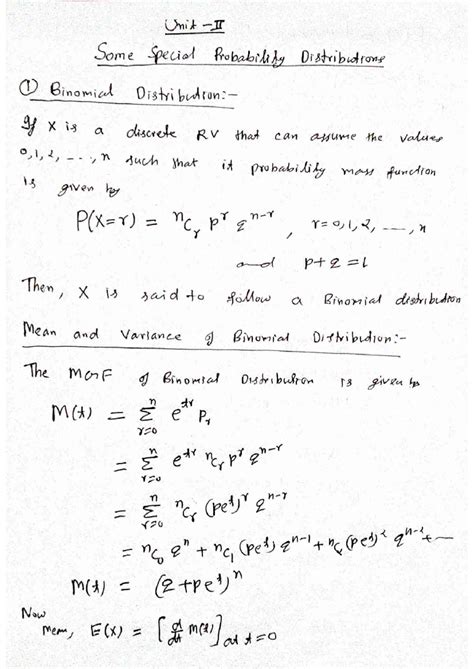 Unit -II
Some Special Probability Distributions
① Binomial Distribution:-
If X is a discrete RV that can assume the values
0,1,2, ---, n such that it probability mass function
is given by
P(X=r) = nCr p^r q^(n-r), r=0,1,2, ---, n
and p+q=1
Then, X is said to follow a Binomial distribution
Mean and Variance of Binomial Distribution:-
The MGF of Binomial Distribution is given by
M(t) = Σ_(r=0)^n e^(tr) P_r
= Σ_(r=0)^n e^(tr) nCr p^r q^(n-r)
= Σ_(r=0)^n nCr (pe^t)^r q^(n-r)
= nC0 q^n + nC1 (pe^t) q^(n-1) + nC2 (pe^t)^2 q^(n-2) + ---
M(t) = (q+pe^t)^n
Now
Mean, E(X) = [d/dt M(t)] at t=0